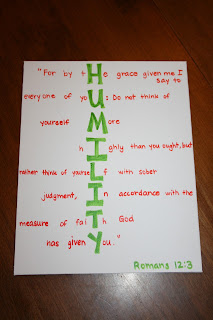 "For by tHe grace given me I
say to
everyone of yoU: Do not think of
yourself More
hIghly than you ought, but
rather think of yourseLf with sober
judgment, In accordance with the
measure of faiTh God
has given You."
Romans 12:3